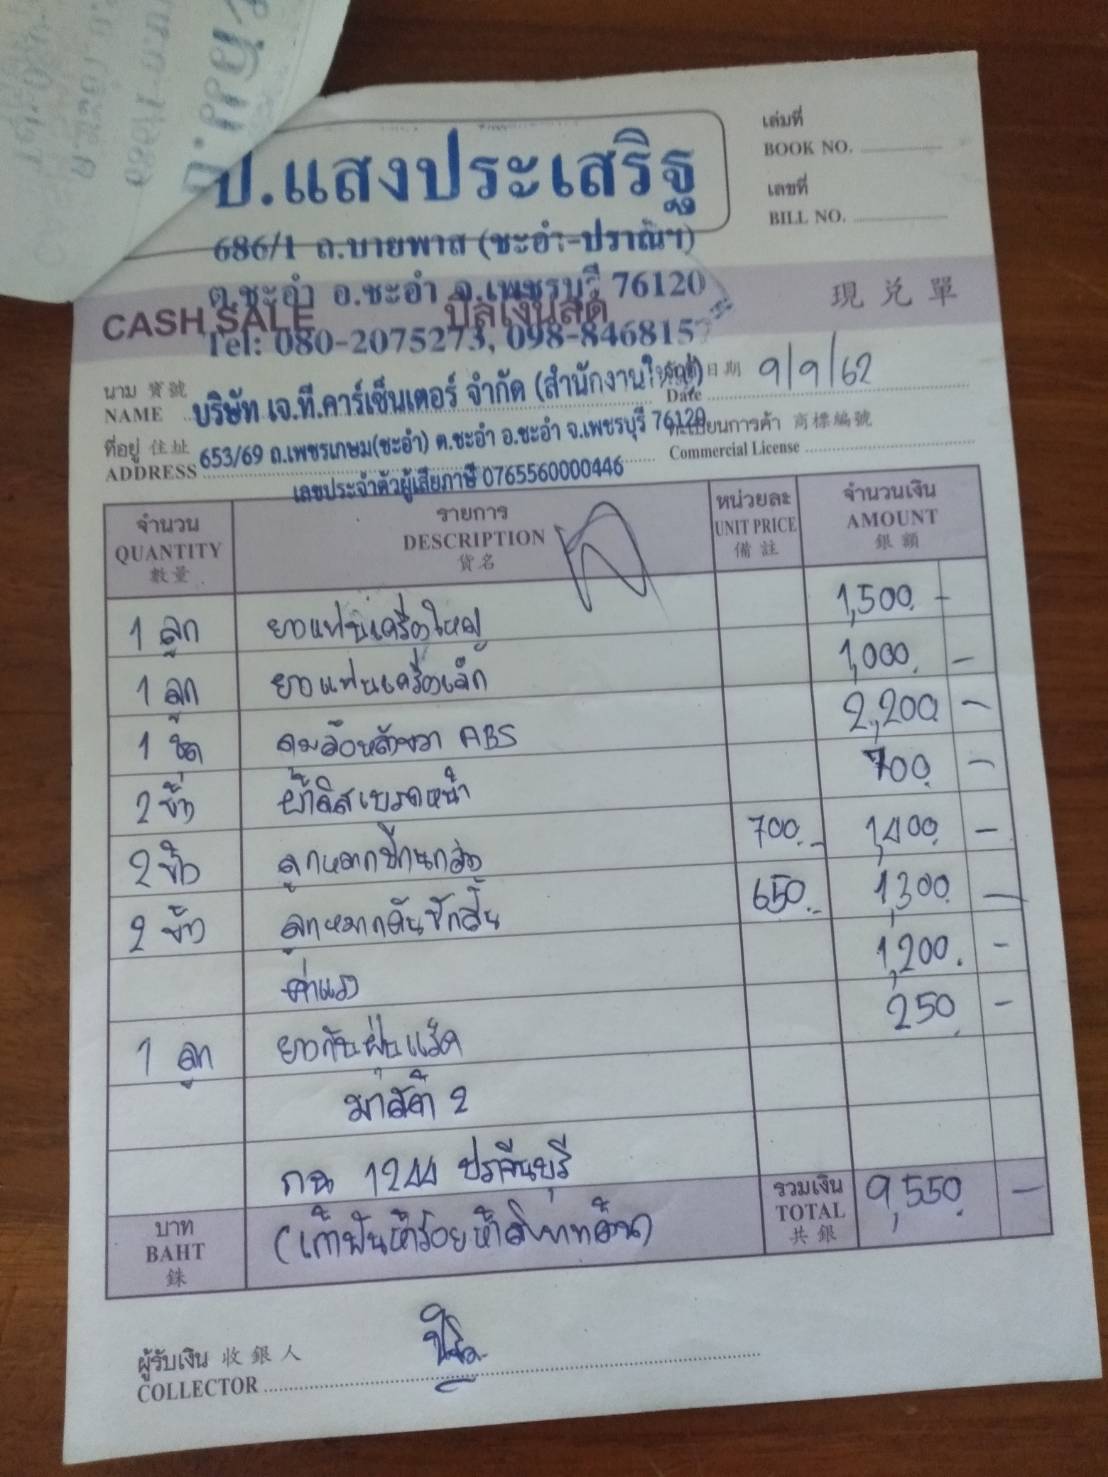 ป.แสงประเสริฐ
เล่มที่
BOOK NO.
เลขที่
BILL NO.
686/1 ถ.บายพาส (ชะอำ-ปราณฯ)
ต.ชะอำ อ.ชะอำ จ.เพชรบุรี 76120
CASH SALE บิลเงินสด 現兌單
Tel: 080-2075273, 098-846815
นาม 寶號
NAME บริษัท เจ.ที.คาร์เซ็นเตอร์ จำกัด (สำนักงานใหญ่)
วันที่ 日期
Date 9/9/62
ที่อยู่ 住址
ADDRESS 653/69 ถ.เพชรเกษม(ชะอำ) ต.ชะอำ อ.ชะอำ จ.เพชรบุรี 76120
ทะเบียนการค้า 商標編號
Commercial License
เลขประจำตัวผู้เสียภาษี 0765560000446
จำนวน รายการ หน่วยละ จำนวนเงิน
QUANTITY DESCRIPTION UNIT PRICE AMOUNT
數量 貨名 備註 銀額
1 ลูก ยางแท่นเครื่องใหญ่ 1,500 -
1 ลูก ยางแท่นเครื่องเล็ก 1,000 -
1 ชุด ดุมล้อหลังขวา ABS 2,200 -
2 ข้าง ผ้าดิสเบรคหน้า 700 -
2 ข้าง ลูกหมากปีกนกล่าง 700.- 1,400 -
2 ข้าง ลูกหมากคันชักสั้น 650.- 1,300 -
ค่าแรง 1,200 -
1 ลูก ยางกันฝุ่นแร็ค 250 -
มาสด้า 2
กฉ 1244 ปราจีนบุรี
บาท
BAHT
銖
(เก้าพันห้าร้อยห้าสิบบาทถ้วน)
รวมเงิน
TOTAL
共銀
9,550 -
ผู้รับเงิน 收銀人
COLLECTOR